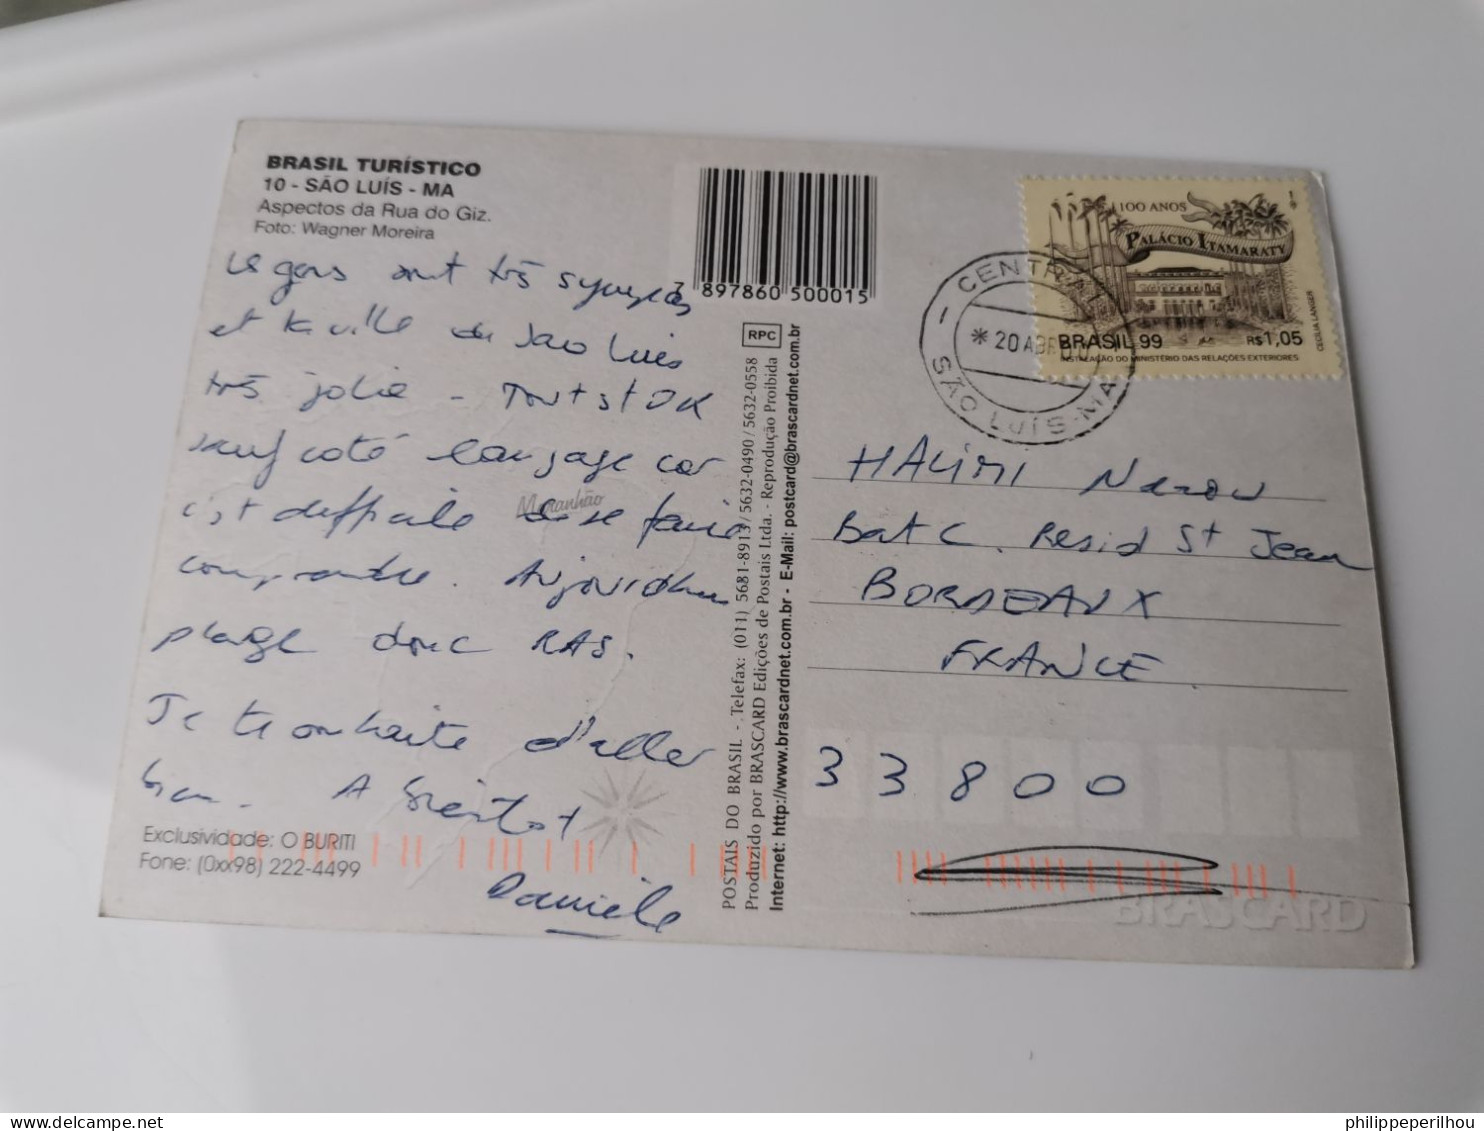 BRASIL TURÍSTICO
10 - SÃO LUÍS - MA
Aspectos da Rua do Giz.
Foto: Wagner Moreira
Le gens sont très sympas
et la ville de Sao Luis
très jolie - Tout st OK
sauf coté language car
c'est difficile de se faire
comprendre. Aujourd'hui
plage donc RAS.
Je te souhaite d'aller
bien. A bientot
Danièle
Maranhão
Exclusividade: O BURITI
Fone: (0xx98) 222-4499
7 897860 500015
RPC
POSTAIS DO BRASIL - Telefax: (011) 5681-8913 / 5632-0490 / 5632-0558
Produzido por BRASCARD Edições de Postais Ltda. - Reprodução Proibida
Internet: http://www.brascardnet.com.br - E-Mail: postcard@brascardnet.com.br
CENTRAL
* 20 ABR
SÃO LUÍS-MA
100 ANOS
PALÁCIO ITAMARATY
BRASIL 99 R$ 1,05
INSTALAÇÃO DO MINISTÉRIO DAS RELAÇÕES EXTERIORES
CECILIA LANGER
HALIMI
Bat C. Resid St Jean
BORDEAUX
FRANCE
33800
BRASCARD
philippeperilhou